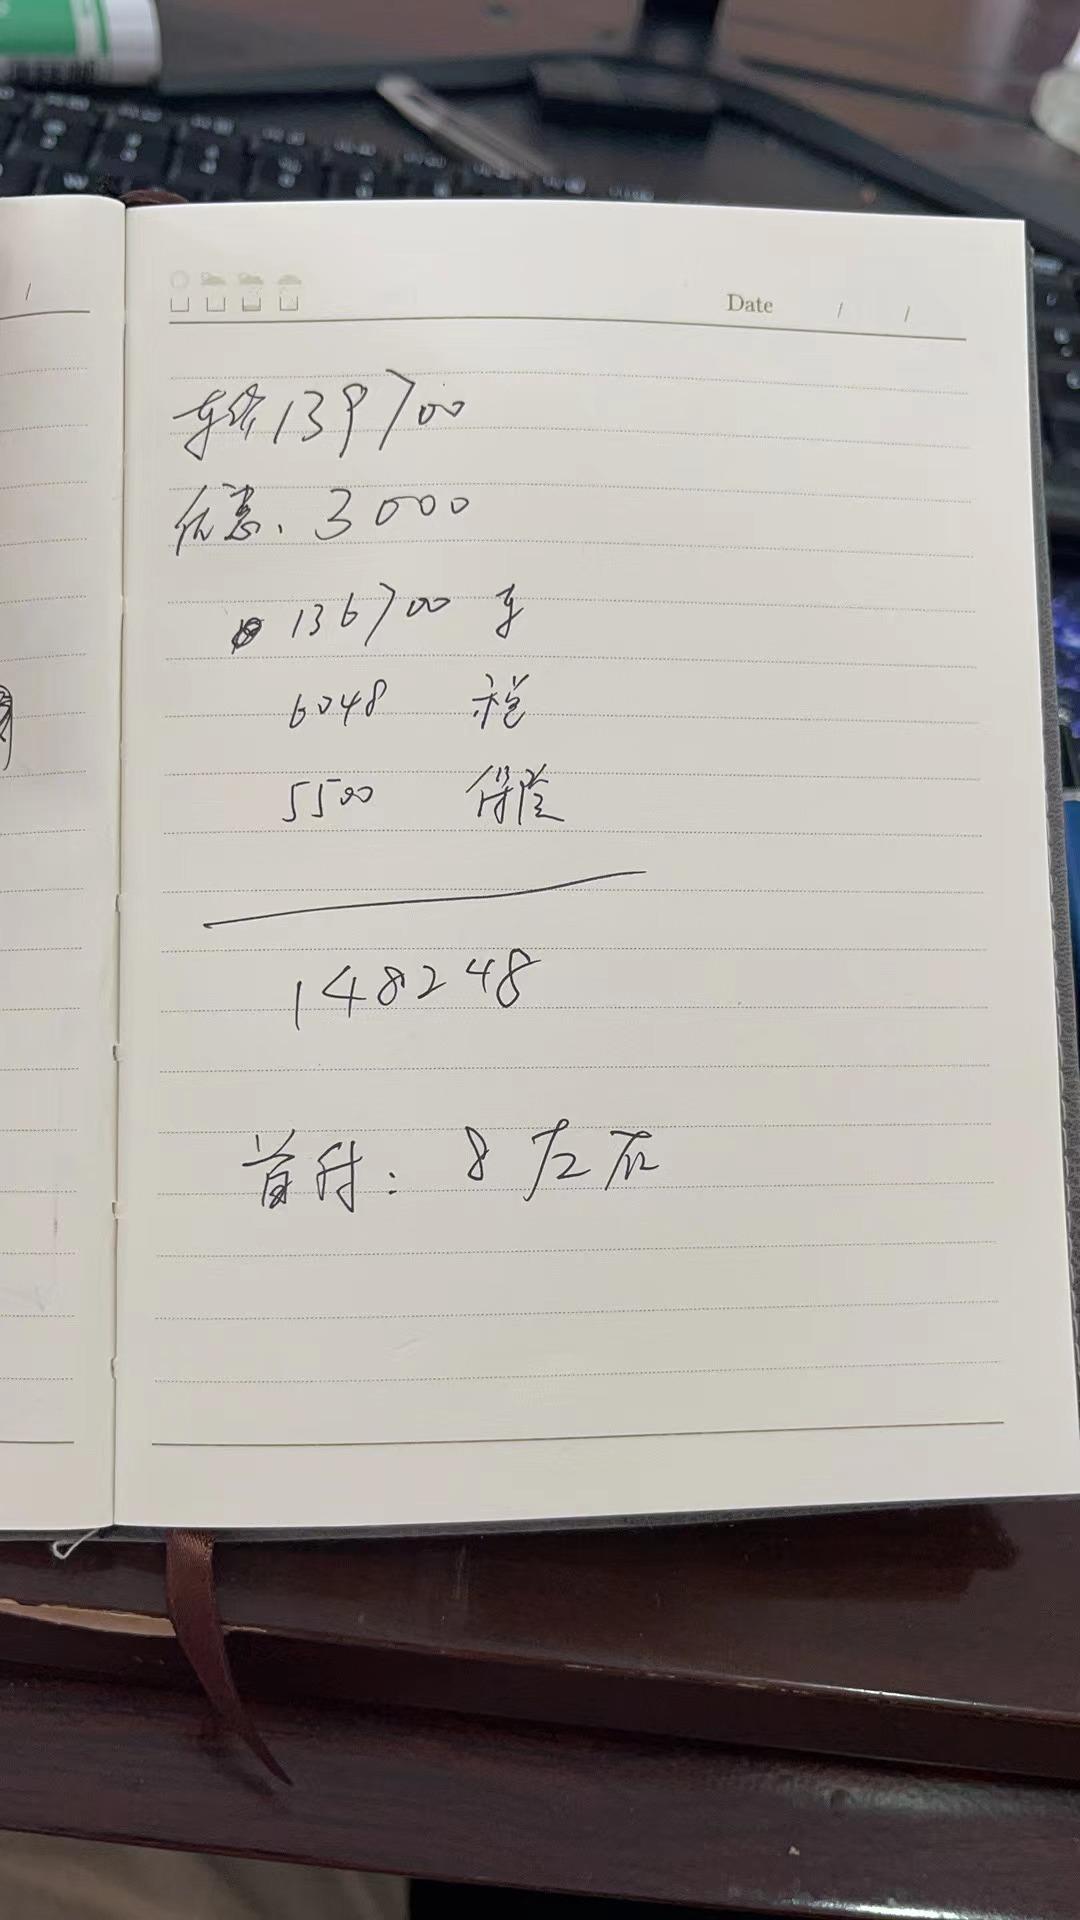 Date / /
车价139700
优惠、3000
136700 车
6048 税
5500 保险
148248
首付：8左右